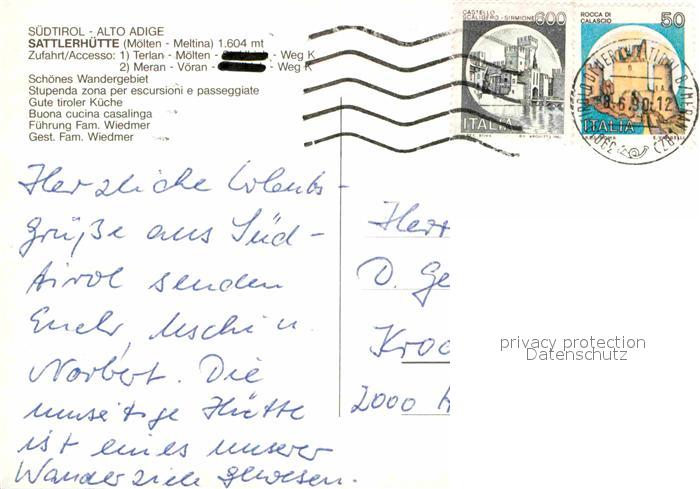 SÜDTIROL - ALTO ADIGE
SATTLERHÜTTE (Mölten - Meltina) 1.604 mt
Zufahrt/Accesso: 1) Terlan - Mölten - Weg K
2) Meran - Vöran - Weg K
Schönes Wandergebiet
Stupenda zona per escursioni e passeggiate
Gute tiroler Küche
Buona cucina casalinga
Führung Fam. Wiedmer
Gest. Fam. Wiedmer
CASTELLO
SCALIGERO - SIRMIONE
600
ITALIA
ROCCA DI
CALASCIO
50
ITALIA
8.6.90.12
Herzliche Urlaubs-
grüße aus Süd-
tirol senden
Euch, Uschi u.
Norbert. Die
umseitige Hütte
ist eines unserer
Wanderziele gewesen.
Herr
D. Ge
Kroc
2000 H
privacy protection
Datenschutz